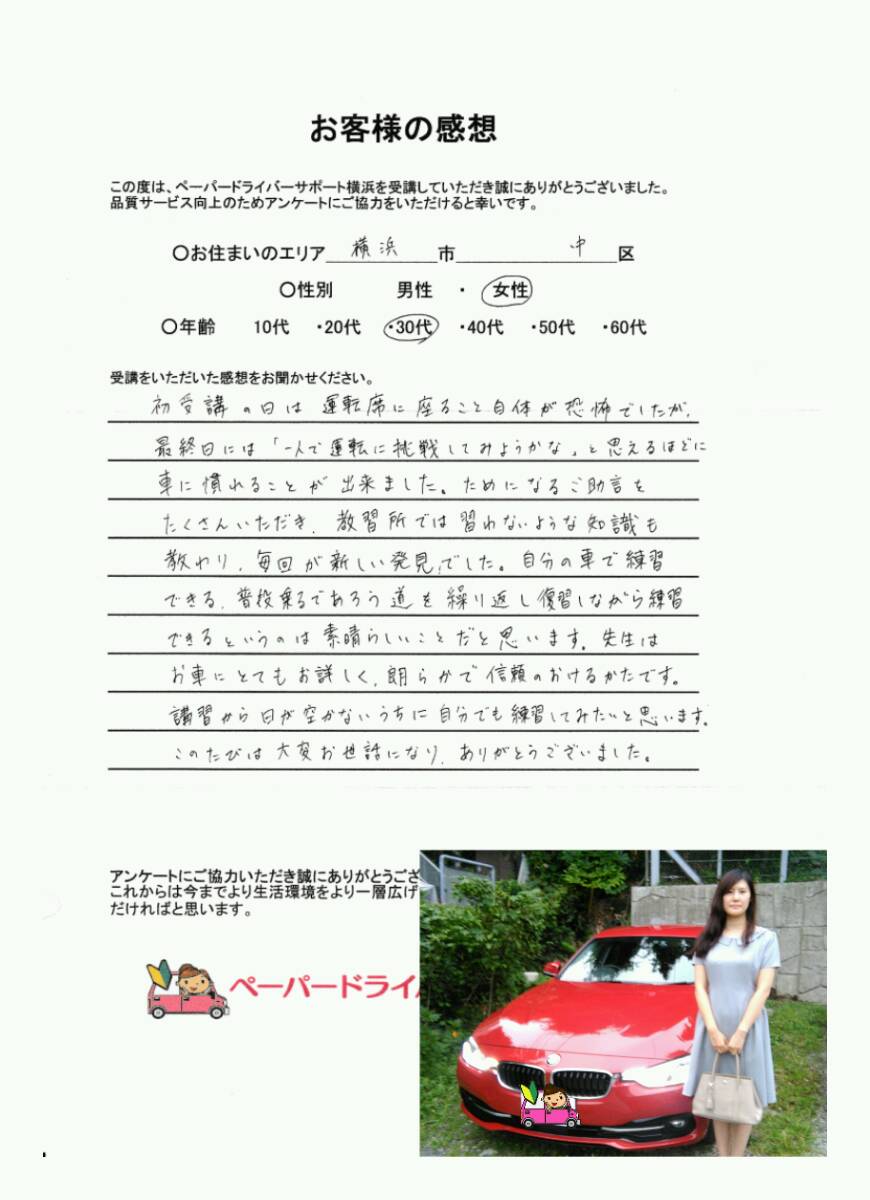 お客様の感想
この度は、ペーパードライバーサポート横浜を受講していただき誠にありがとうございました。
品質サービス向上のためアンケートにご協力をいただけると幸いです。
〇お住まいのエリア 横浜 市 中 区
〇性別 男性 ・ 女性
〇年齢 10代 ・20代 ・30代 ・40代 ・50代 ・60代
受講をいただいた感想をお聞かせください。
初受講の日は運転席に座ること自体が恐怖でしたが、
最終日には「一人で運転に挑戦してみようかな」と思えるほどに
車に慣れることが出来ました。ためになるご助言を
たくさんいただき、教習所では習わないような知識も
教わり、毎回が新しい発見でした。自分の車で練習
できる、普段乗るであろう道を繰り返し復習しながら練習
できるというのは素晴らしいことだと思います。先生は
お車にとてもお詳しく、朗らかで信頼のおけるかたです。
講習から日が空かないうちに自分でも練習してみたいと思います。
このたびは大変お世話になり、ありがとうございました。
アンケートにご協力いただき誠にありがとうござ
これからは今までより生活環境をより一層広げ
だければと思います。
ペーパードライ